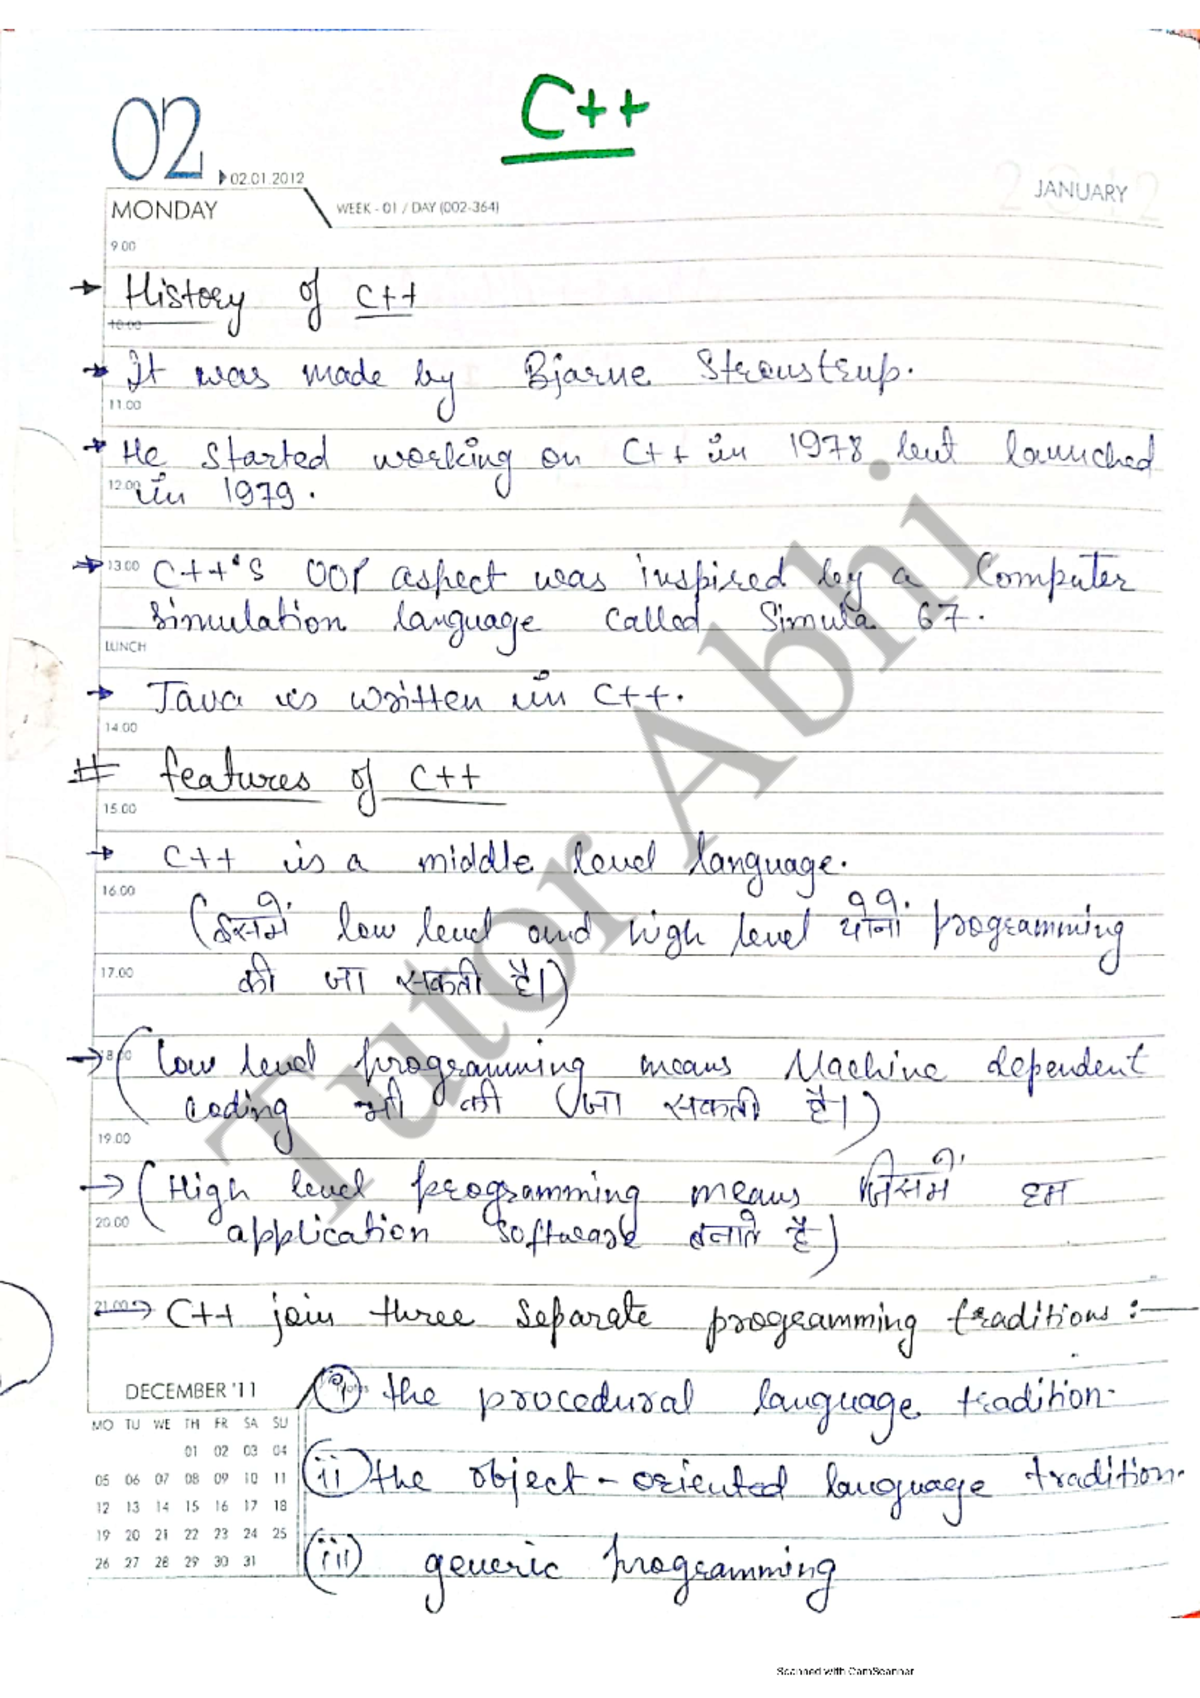 C++
02
02.01.2012
MONDAY
WEEK - 01 / DAY (002-364)
JANUARY
2012
9.00
→ History of C++
10.00
→ It was made by Bjarne Stroustrup.
11.00
→ He started working on C++ in 1978 but launched
12.00 in 1979.
→ 13.00 C++'s OOP aspect was inspired by a Computer
simulation language called Simula 67.
LUNCH
→ Java is written in C++.
14.00
# features of C++
15.00
→ C++ is a middle level language.
16.00
(इसमें low level and high level दोनों programming
17.00 की जा सकती है।)
→ 18.00 (low level programming means Machine dependent
coding भी की जा सकती है।)
19.00
→ (High level programming means जिसमें हम
20.00 application software बनाते है)
21.00 → C++ join three separate programming traditions :—
DECEMBER '11
(i) the procedural language tradition.
MO TU WE TH FR SA SU
01 02 03 04
(ii) the object-oriented language tradition.
05 06 07 08 09 10 11
12 13 14 15 16 17 18
19 20 21 22 23 24 25
(iii) generic programming
26 27 28 29 30 31
Tutor Abhi
Scanned with CamScanner